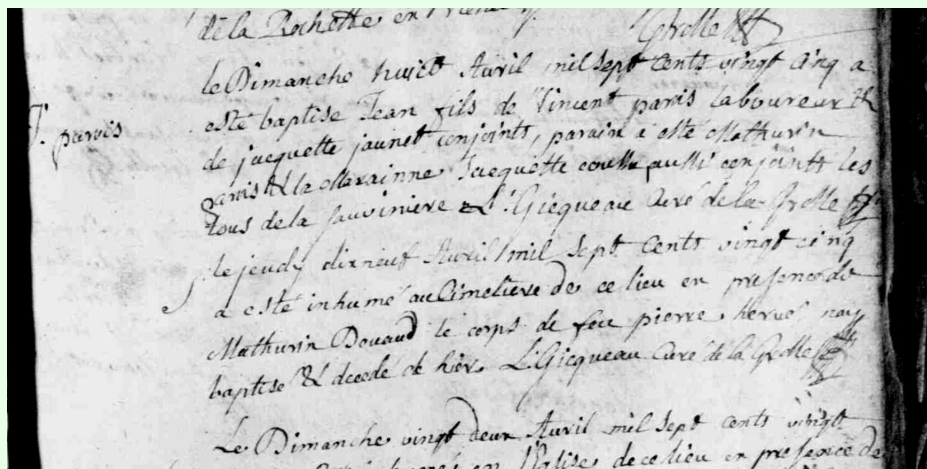 de la Rochette en
Grolle
le Dimanche huict Avril mil sept cents vingt cinq a
J. parois
esté baptisé Jean fils de Vincent paris laboureur &
de jacquette jaunet conjoints, parain a esté Mathurin
paris & la Marainne Jacquette aussi conjoints les
tous de la sauviniere & L. Gicqueau Curé de la Grolle
le jeudy dixneuf Avril mil sept Cents vingt cinq
a esté inhumé au Cimetiere de ce lieu en presence de
Mathurin Douaud le corps de feu pierre hervé nay
baptisé & decedé de hier L. Gicqueau Curé de la Grolle
Le Dimanche vingt deux Avril mil sept cents vingt
en l'Eglise de ce lieu en presence de